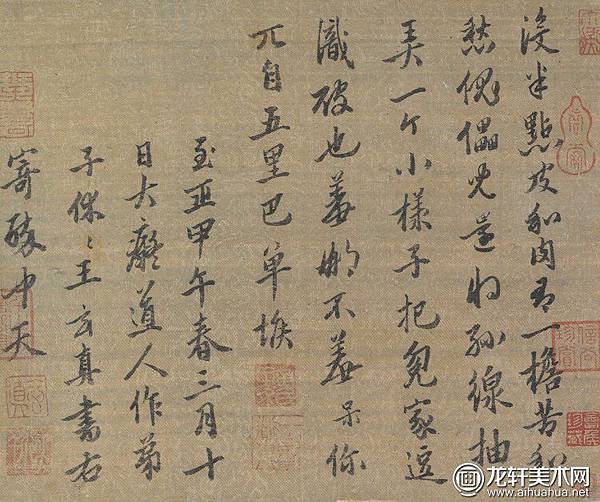 没半點皮和肉有一擔苦和
愁傀儡兒還將絲線抽
弄一个小樣子把冤家逗
識破也羞那不羞呆你
兀自五里巴单堠
至正甲午春三月十
日大癡道人作弟
子休〻王玄真書右
寄醉中天
龙轩美术网
www.aihuahua.net